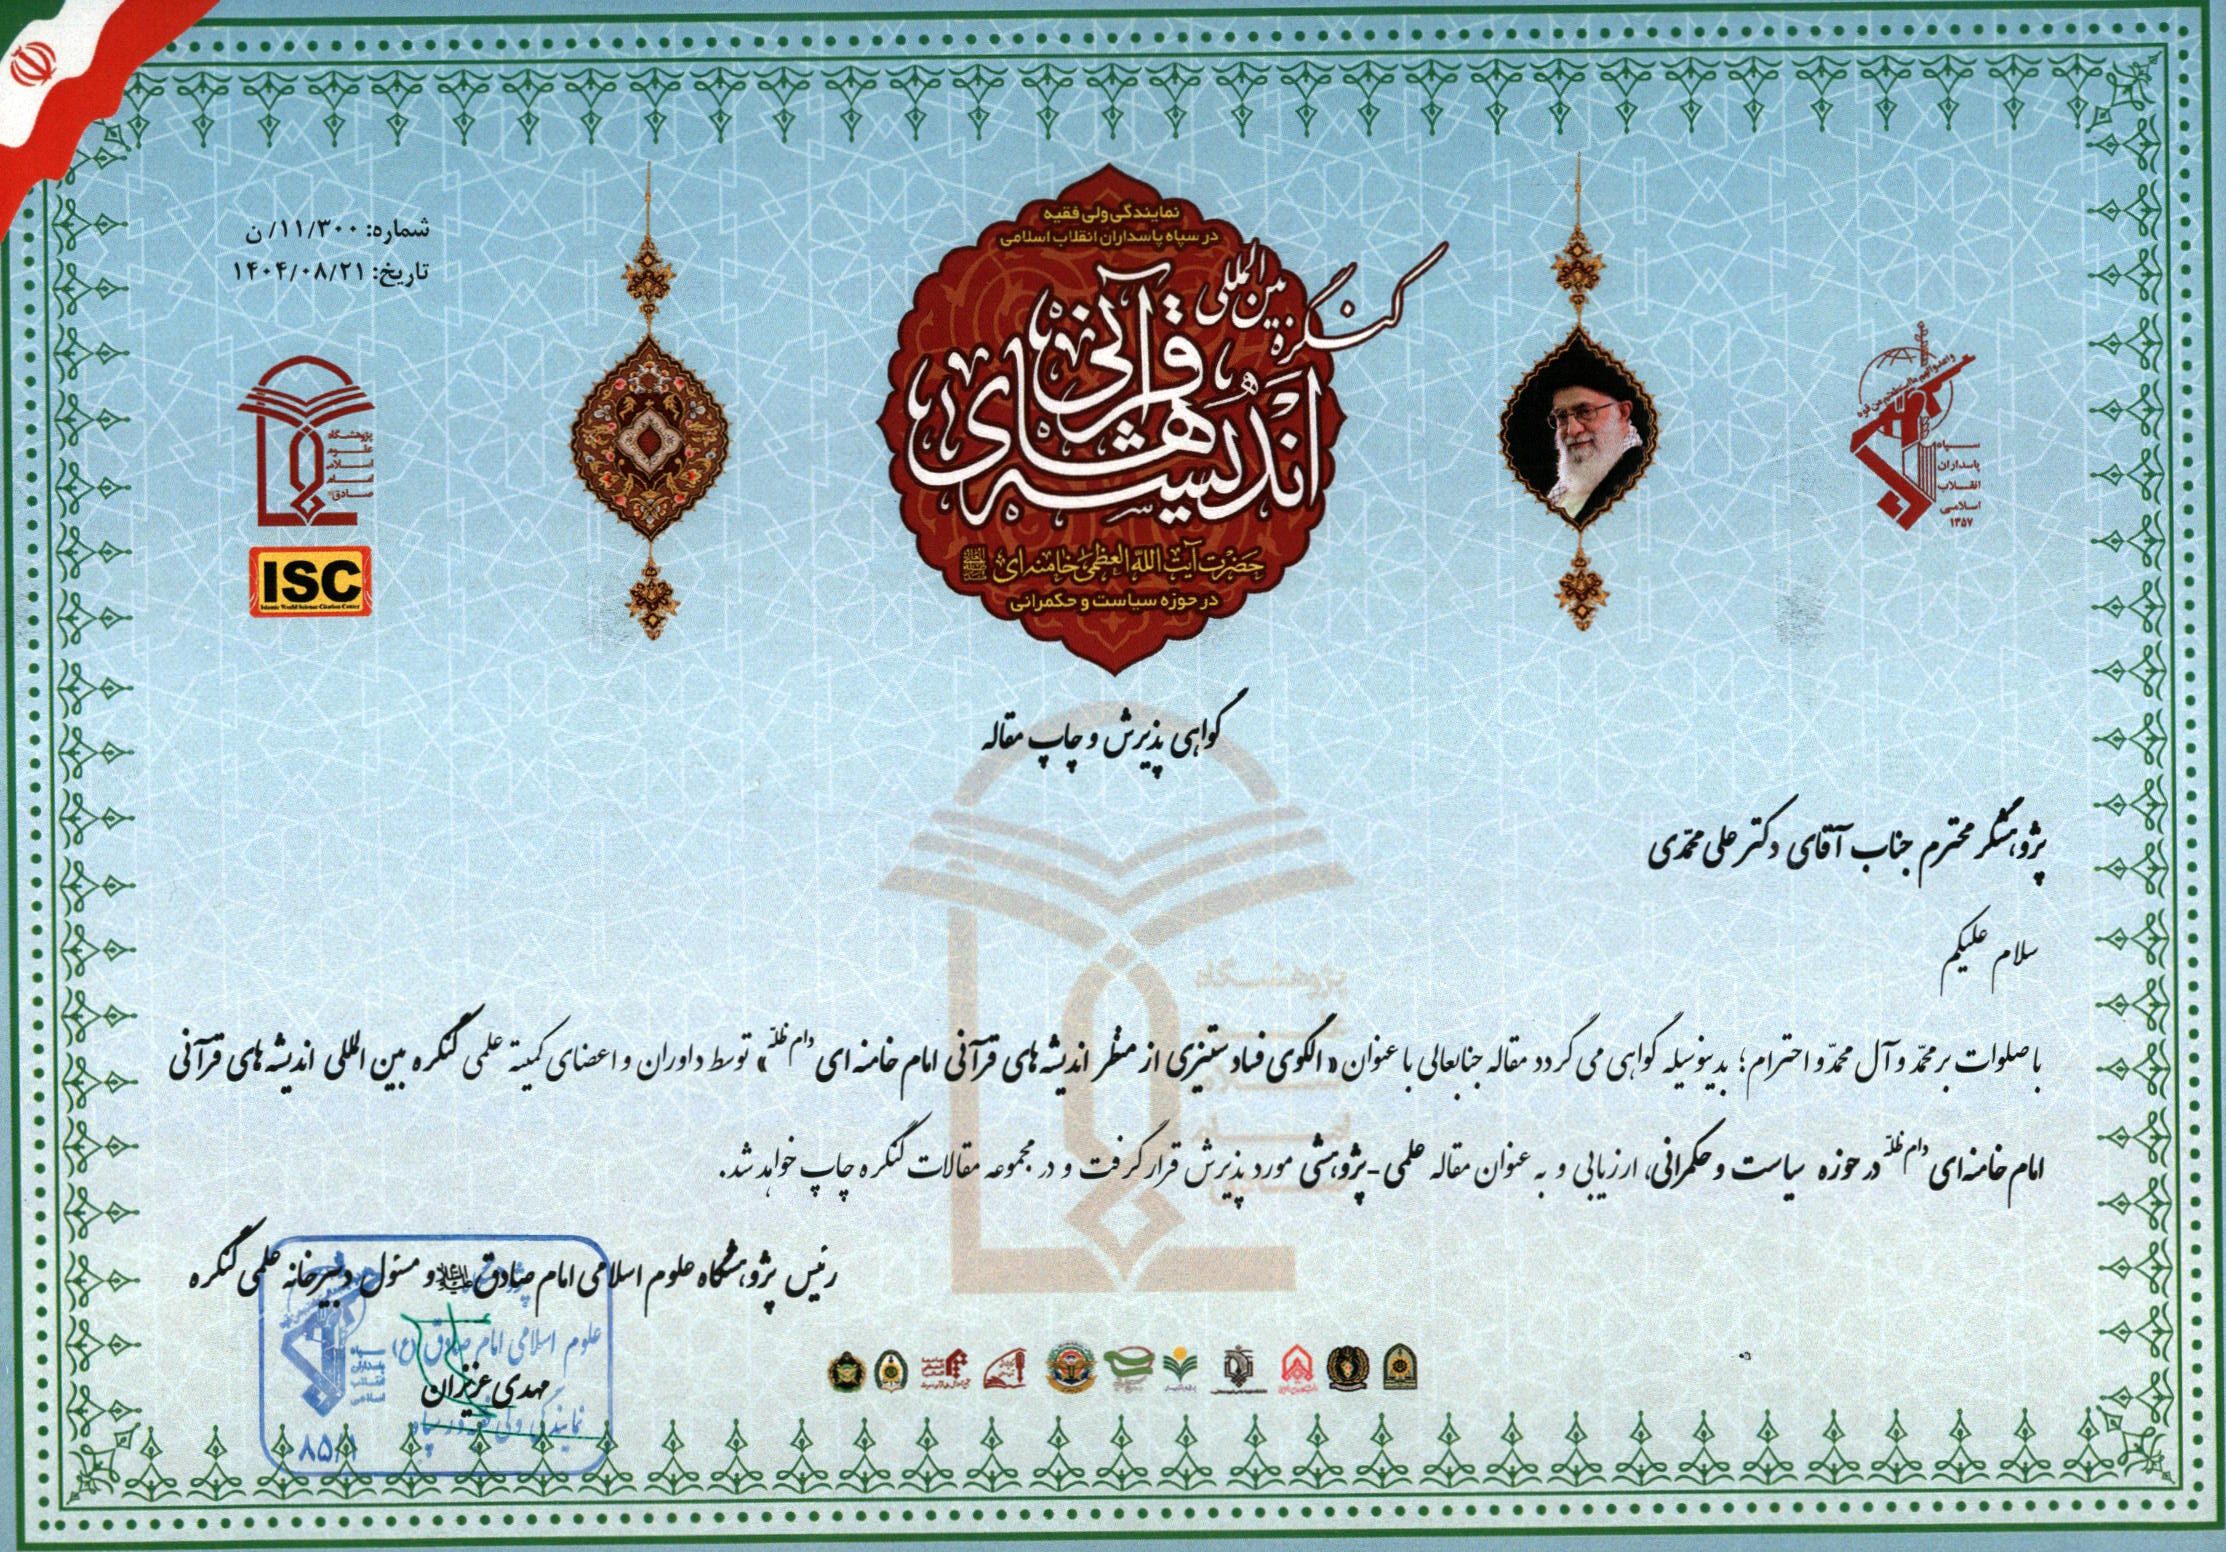 شماره: ۱۱/۳۰۰/ن
تاریخ: ۱۴۰۴/۰۸/۲۱
نمایندگی ولی فقیه
در سپاه پاسداران انقلاب اسلامی
کنگره بین المللی
اندیشه های قرآنی
حضرت آیت الله العظمی خامنه ای
در حوزه سیاست و حکمرانی
سپاه
پاسداران
انقلاب
اسلامی
۱۳۵۷
پژوهشگاه
علوم
اسلامی
امام
صادق
ISC
Islamic World Science Citation Center
گواهی پذیرش و چاپ مقاله
پژوهشگر محترم جناب آقای دکتر علی محمّدی
سلام علیکم
با صلوات بر محمّد و آل محمّد و احترام؛ بدینوسیله گواهی می گردد مقاله جنابعالی با عنوان «الگوی فساد ستیزی از منظر اندیشه های قرآنی امام خامنه ای دام ظلّه» توسط داوران و اعضای کمیته علمی کنگره بین المللی اندیشه های قرآنی
امام خامنه ای دام ظلّه در حوزه سیاست و حکمرانی، ارزیابی و به عنوان مقاله علمی - پژوهشی مورد پذیرش قرار گرفت و در مجموعه مقالات کنگره چاپ خواهد شد.
رئیس پژوهشگاه علوم اسلامی امام صادق علیه السلام و مسئول دبیرخانه علمی کنگره
علوم اسلامی امام صادق (ع)
سپاه
پاسداران
انقلاب
اسلامی
مهدی عزیزان
نمایندگی ولی فقیه در سپاه